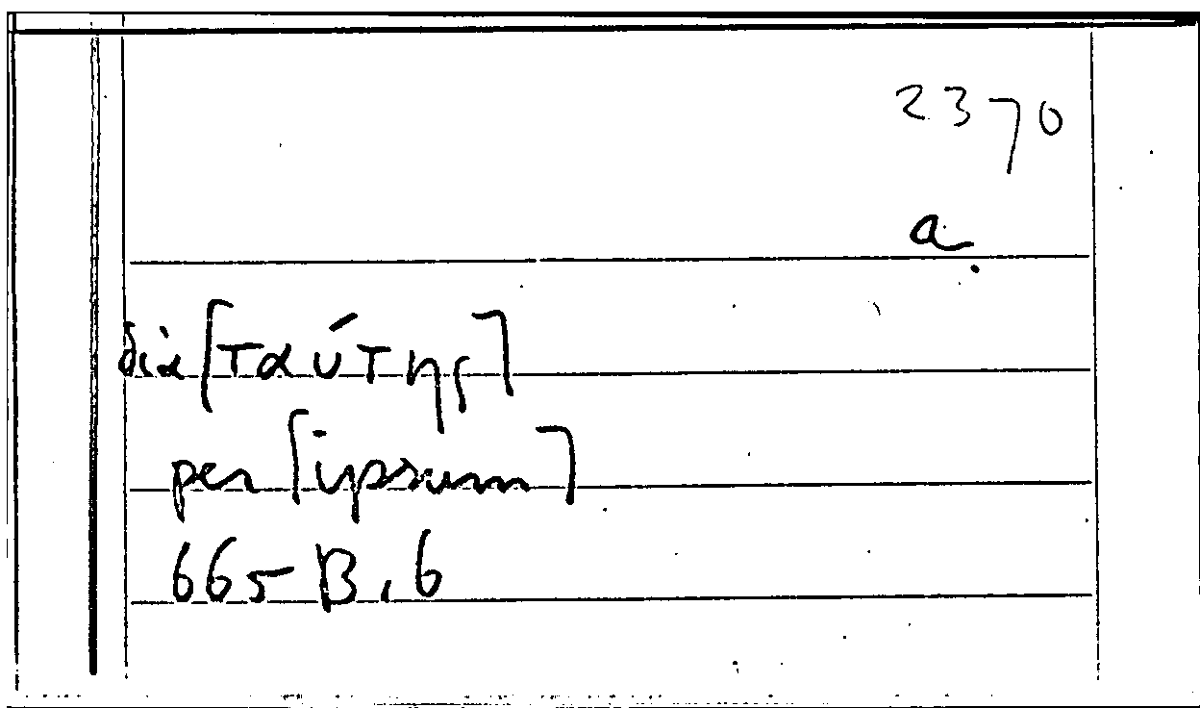 2370
a.
διὰ [ταύτης]
per [ipsum]
665 B, 6